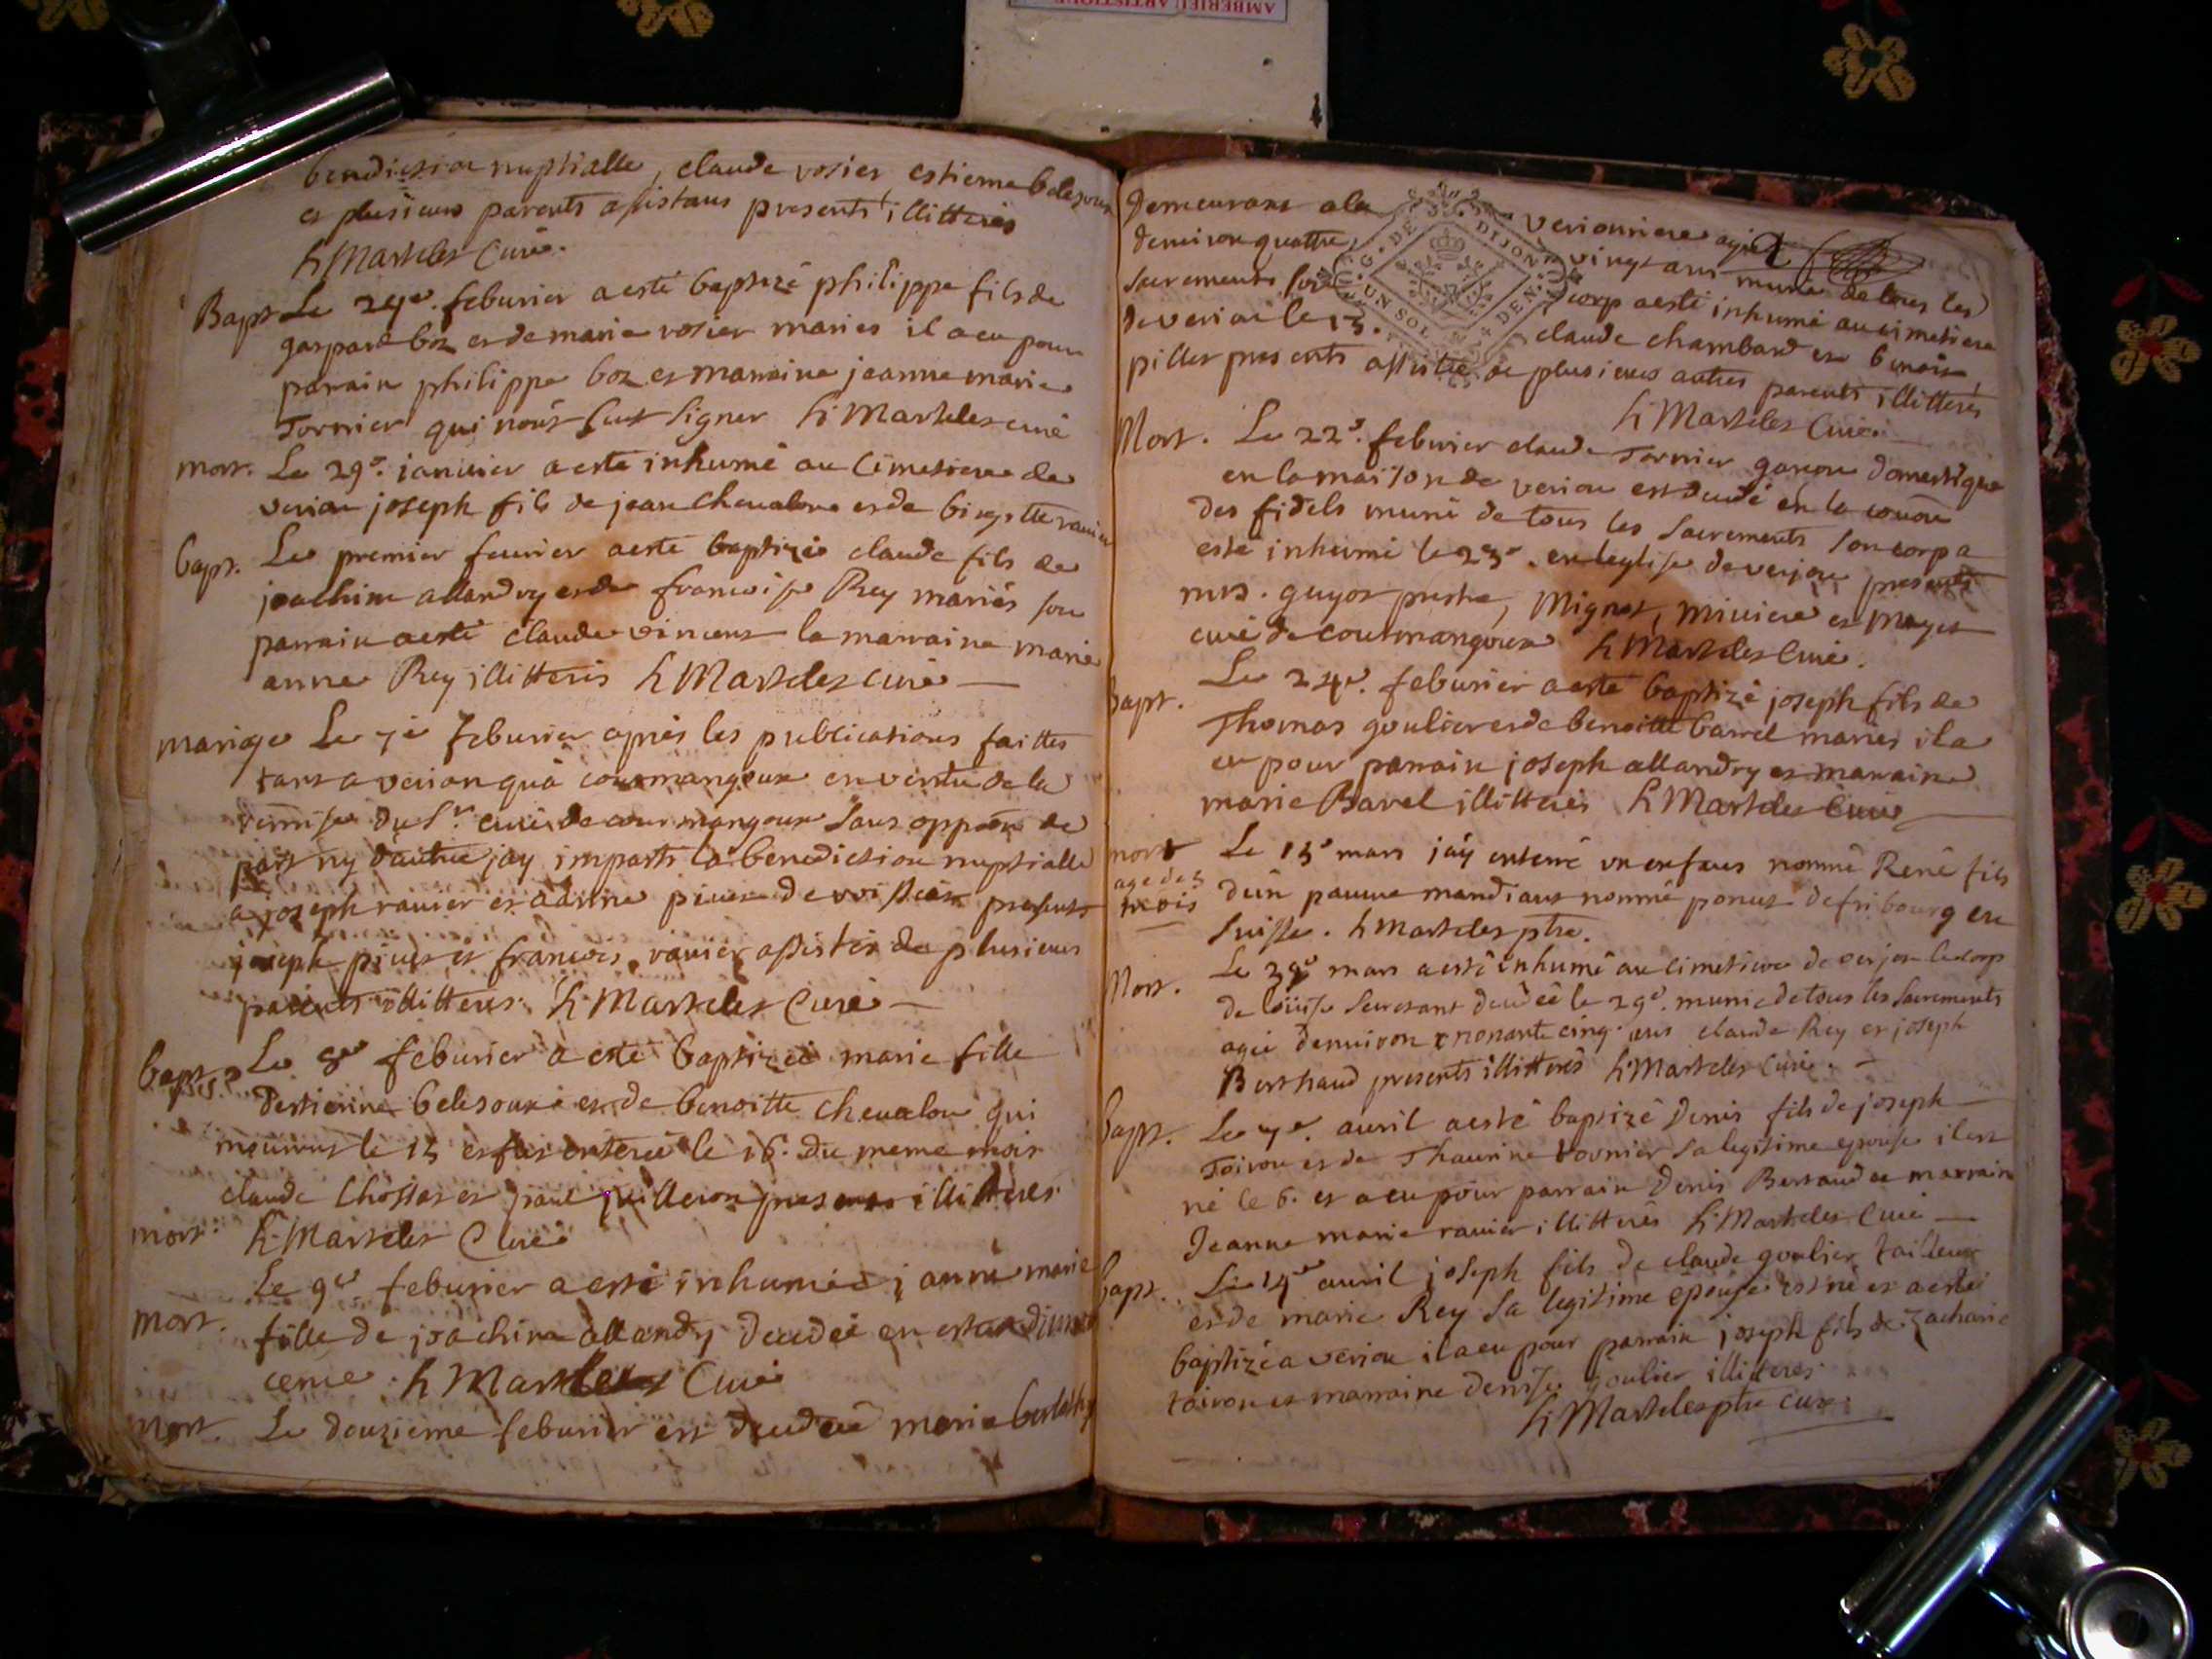 AMBERIEU ARTISTIQUE
benediction nuptialle, claude vosier estienne belesour
et plusieurs parents assistans presents illitterés
h Marteler Curé.
Bapt Le 29e. feburier a esté baptizé philippe fils de
gaspard boz et de marie vosier mariés il a eu pour
parain philippe boz et maraine jeanne marie
Tornier qui nont sceut signer h Marteler curé
mort. Le 29e. ianuier a esté inhumé au Cimetiere de
verion joseph fils de jean Chevalon et de
bapt. Le premier feurier a esté baptizé claude fils de
joachim allandry et de francoise Rey mariés son
parrain a esté claude vincent la marraine marie
anne Rey illitterés h Marteler curé
mariage Le 7e feburier apres les publications faittes
tant a verion qua courmangoux en vertu de la
remise du Sr. curé de courmangoux sans oppõn de
part ny dautre jay imparti la benediction nuptialle
a joseph ravier et presents
joseph et francois ravier assistés de plusieurs
parents illitterés. h Marteler Curé
bapt. Le 8e feburier a esté baptizée marie fille
destienne belesour et de benoitte chevalon qui
mourut le 15 et fut enterée le 16. du meme mois
claude et paul presents illitterés
mort. h Marteler Curé
Le 9e feburier a esté inhumée anne marie
mort. fille de joachim allandry decedée en
h Marteler Curé
Mort. Le deuzieme feburier est decedée marie
demeurant a la verionniere agée
denviron quattre vingt ans munie de tous les
sacrements son corp a esté inhumé au cimetiere
de verion le 13. claude chambard et benoit
piller presents assisté de plusieurs autres parents illitterés
G. DE DIJON UN SOL DEN.
h Marteler Curé
Mort. Le 22e. feburier claude Tornier garcon domestique
en la maison de verion est decedé en la
des fidels muni de tous les sacrements son corp a
esté inhumé le 23e. en leglise de verjon presents
mrs. guyot prestre, Mignot, miviere et
curé de courmangoux h Marteler Curé.
Bapt. Le 24e. feburier a esté baptizé joseph fils de
Thomas goulier et de benoitte bavel mariés il a
eu pour parrain joseph allandry et marraine
marie Bavel illitterés h Marteler Curé
mort Le 13e mars jáy enterré un enfant nommé René fils
age de 3 mois
dún pauvre mandiant nommé de fribourg en
Suisse. h Marteler ptre.
Mort. Le mars a esté inhumé au cimetiere de verjon le corp
de louise decedée le 29e. munie de tous les sacrements
agée denviron nonante cinq ans claude Rey et joseph
Berthaud presents illitterés h Marteler Curé.
bapt. Le 7e. auril a esté baptizé Denis fils de joseph
Toiron et de Thaurine sa legitime epouse il est
né le 6. et a eu pour parrain Denis Bertaud et marrain
Jeanne marie ravier illitterés h Marteler Curé
bapt. Le 14e auril joseph fils de claude goulier tailleur
et de marie Rey sa legitime epouse est né et a esté
baptizé a verion il a eu pour parrain joseph fils de Zacharie
toiron et marraine denise goulier illitterés
h Marteler ptre curé